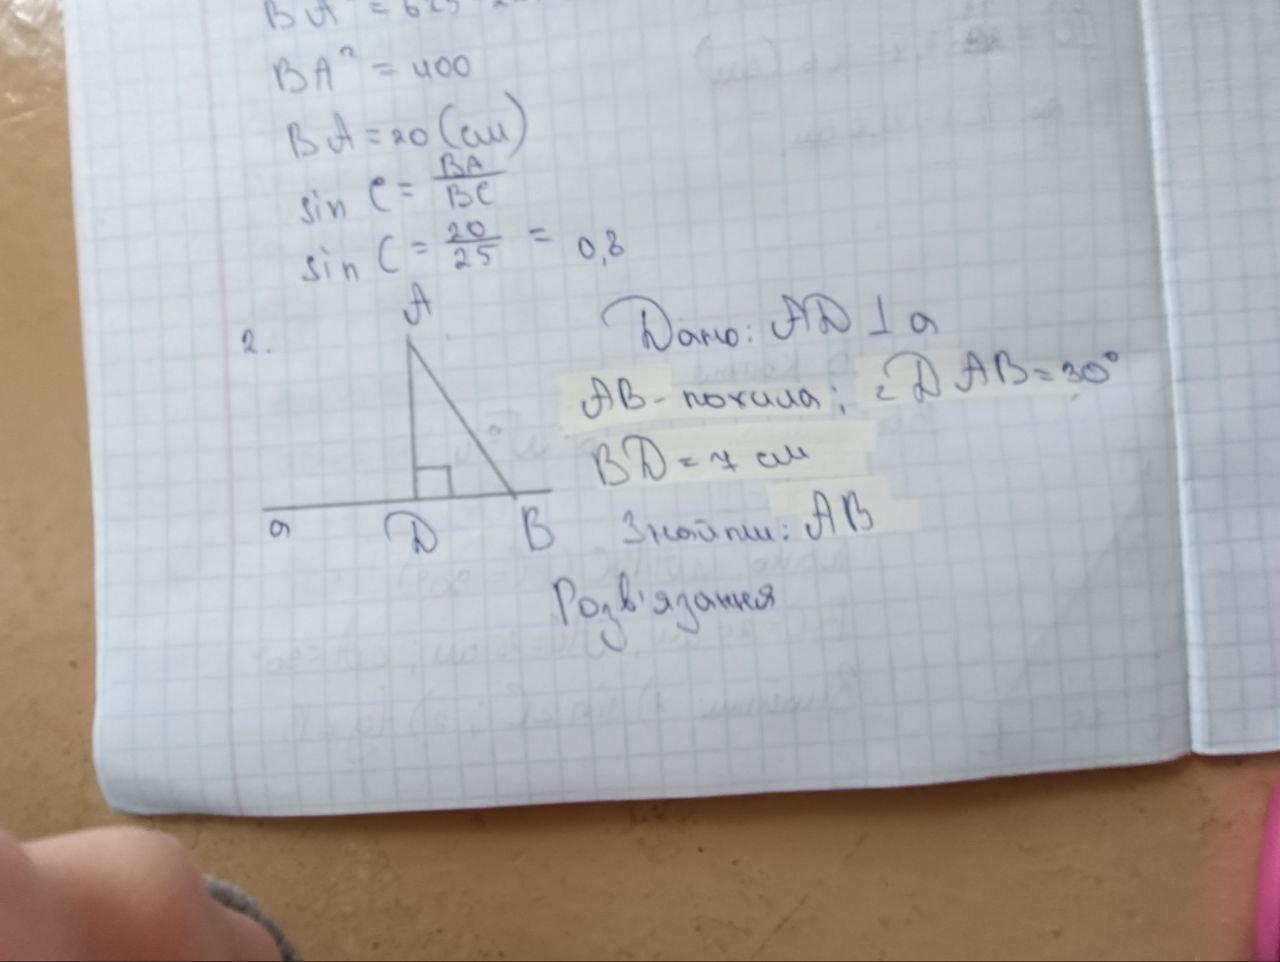 BA² = 625
BA² = 400
BA = 20 (см)
sin C = BA/BC
sin C = 20/25 = 0,8
2.
A
Дано: AD ⊥ a
AB - похила; ∠DAB = 30°
BD = 7 см
a D B
Знайти: AB
Розв'язання